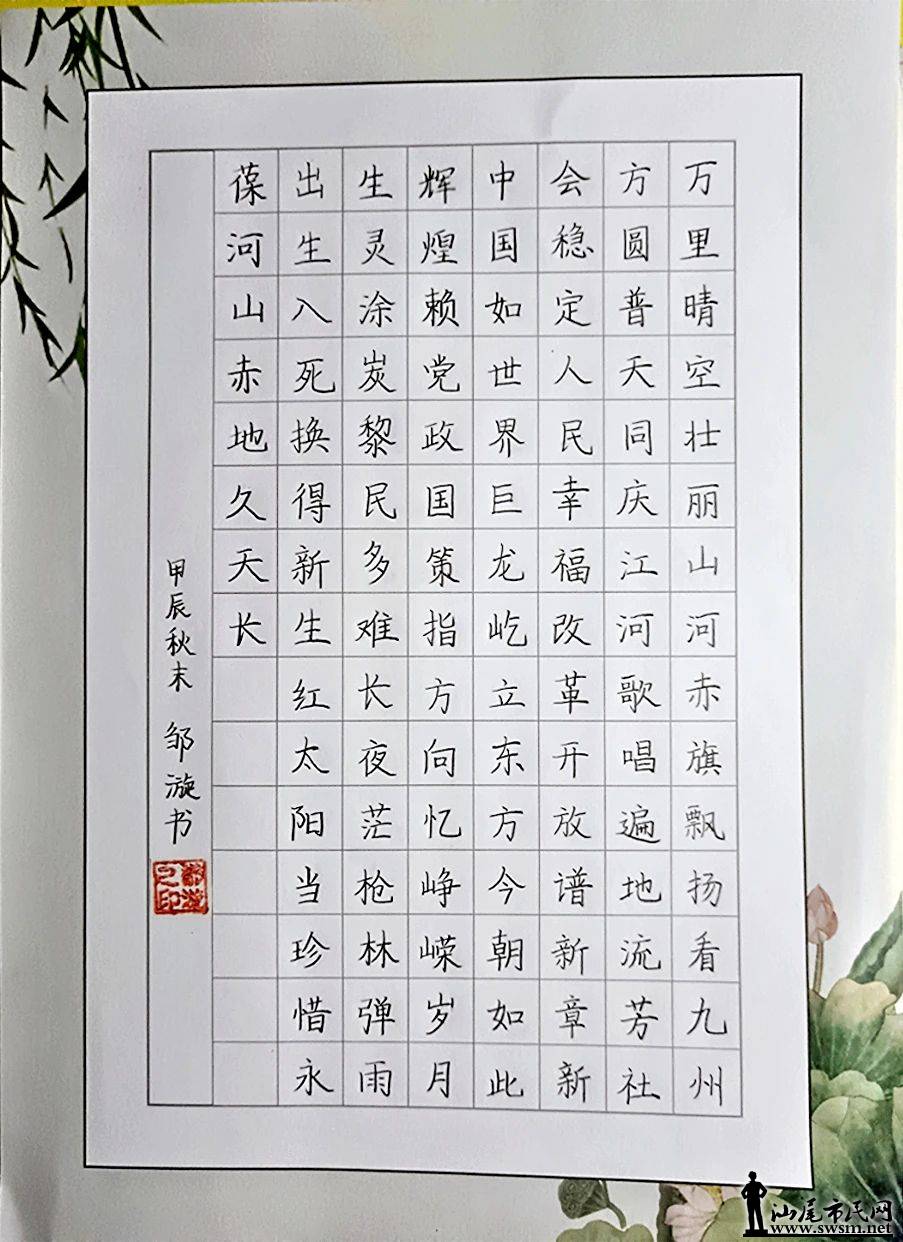 万里晴空壮丽山河赤旗飘扬看九州
方圆普天同庆江河歌唱遍地流芳社
会稳定人民幸福改革开放谱新章新
中国如世界巨龙屹立东方今朝如此
辉煌赖党政国策指方向忆峥嵘岁月
生灵涂炭黎民多难长夜茫枪林弹雨
出生入死换得新生红太阳当珍惜永
葆河山赤地久天长
甲辰秋末 邹漩书
邹漩之印
汕尾市民网
www.swsm.net